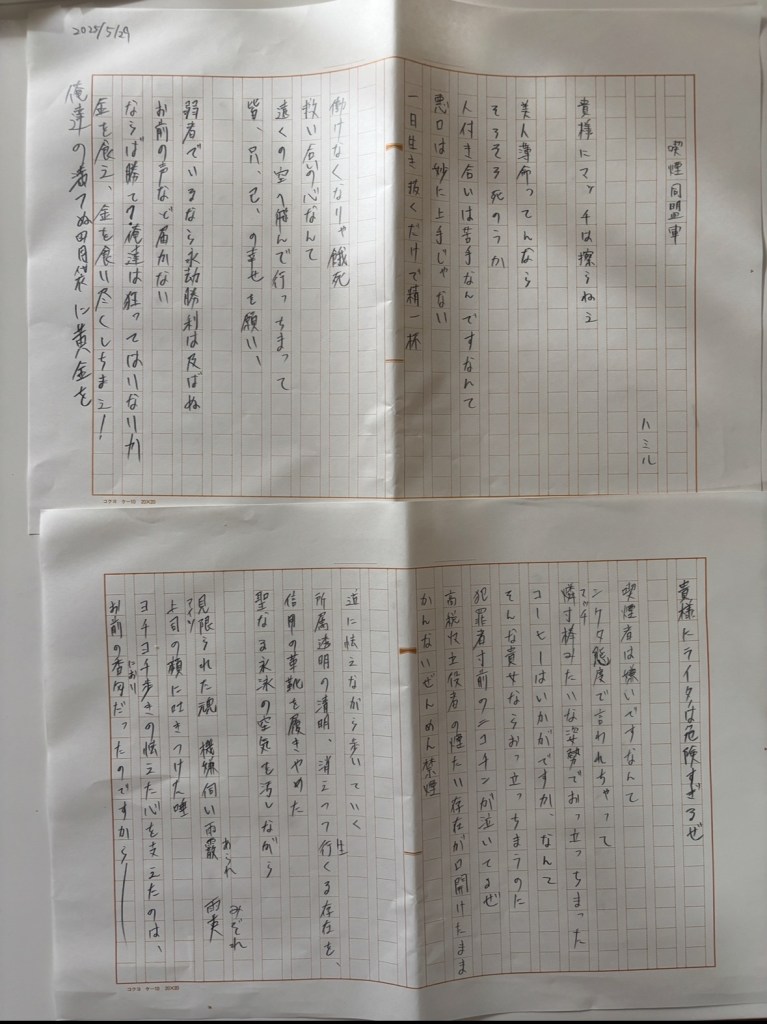 2025/5/29
喫煙同盟軍
ハミル
貴様にマッチは擦らねえ
美人薄命ってんなら
そろそろ死のうか
人付き合いは苦手なんですなんて
悪口は妙に上手じゃない
一日生き抜くだけで精一杯
働けなくなりゃ餓死
救い合いの心なんて
遠くの空へ飛んで行っちまって
皆、只、己、の幸せを願い、
弱者でいるなら永劫勝利は及ばぬ
お前の声など届かない
ならば勝て?俺達は狂ってはいないか
金を食え、金を食い尽くしちまえ!
俺達の満てぬ胃袋に黄金を
コクヨ ケ-10 20×20
貴様にライターは危険すぎるぜ
喫煙者は嫌いですなんて
シケタ態度で言われちゃって
燐寸棒みたいな姿勢でおっ立っちまった
マッチ
コーヒーはいかがですか、なんて
そんな責せならおっ立っちまうのに
犯罪者寸前のニコチンが泣いてるぜ
高税收主役者の煙たい存在が口開けたまま
かんないぜんめん禁煙
道に怯えながら歩いていく
所属透明の透明、消えつつ行くる存在を、
生
信用の革靴を履きやめた
聖なる永泳の空気を汚しながら
見限られた魂 機嫌伺い雨霰 霙
あられ みぞれ
上司の顔に吐きつけた唾
アイツ
ヨチヨチ歩きの怯えた心を支えたのは、
お前の香匂だったのですから――
におい
コクヨ ケ-10 20×20